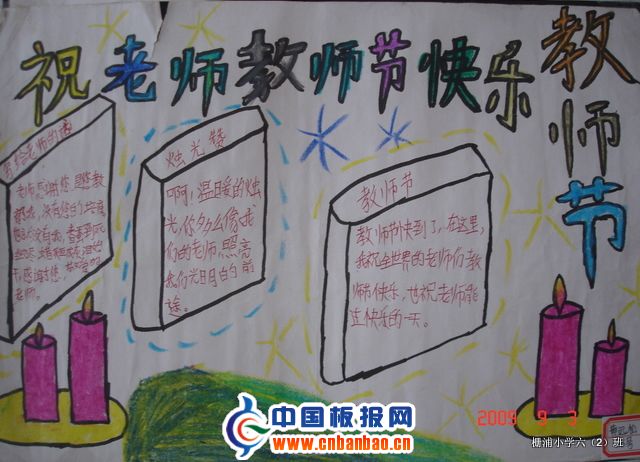 祝老师教师节快乐
教师节
写给老师的话
老师感谢您，是您教
烛光赞
啊，温暖的烛
光，你多么像我
们的老师照亮
我们光明的前
途。
教师节
教师节快到了，在这里，
我祝全世界的老师们教
师节快乐，也祝老师能
过快乐的一天。
2009 9 3
中国板报网
www.cnbanbao.cn
棚浦小学六（2）班